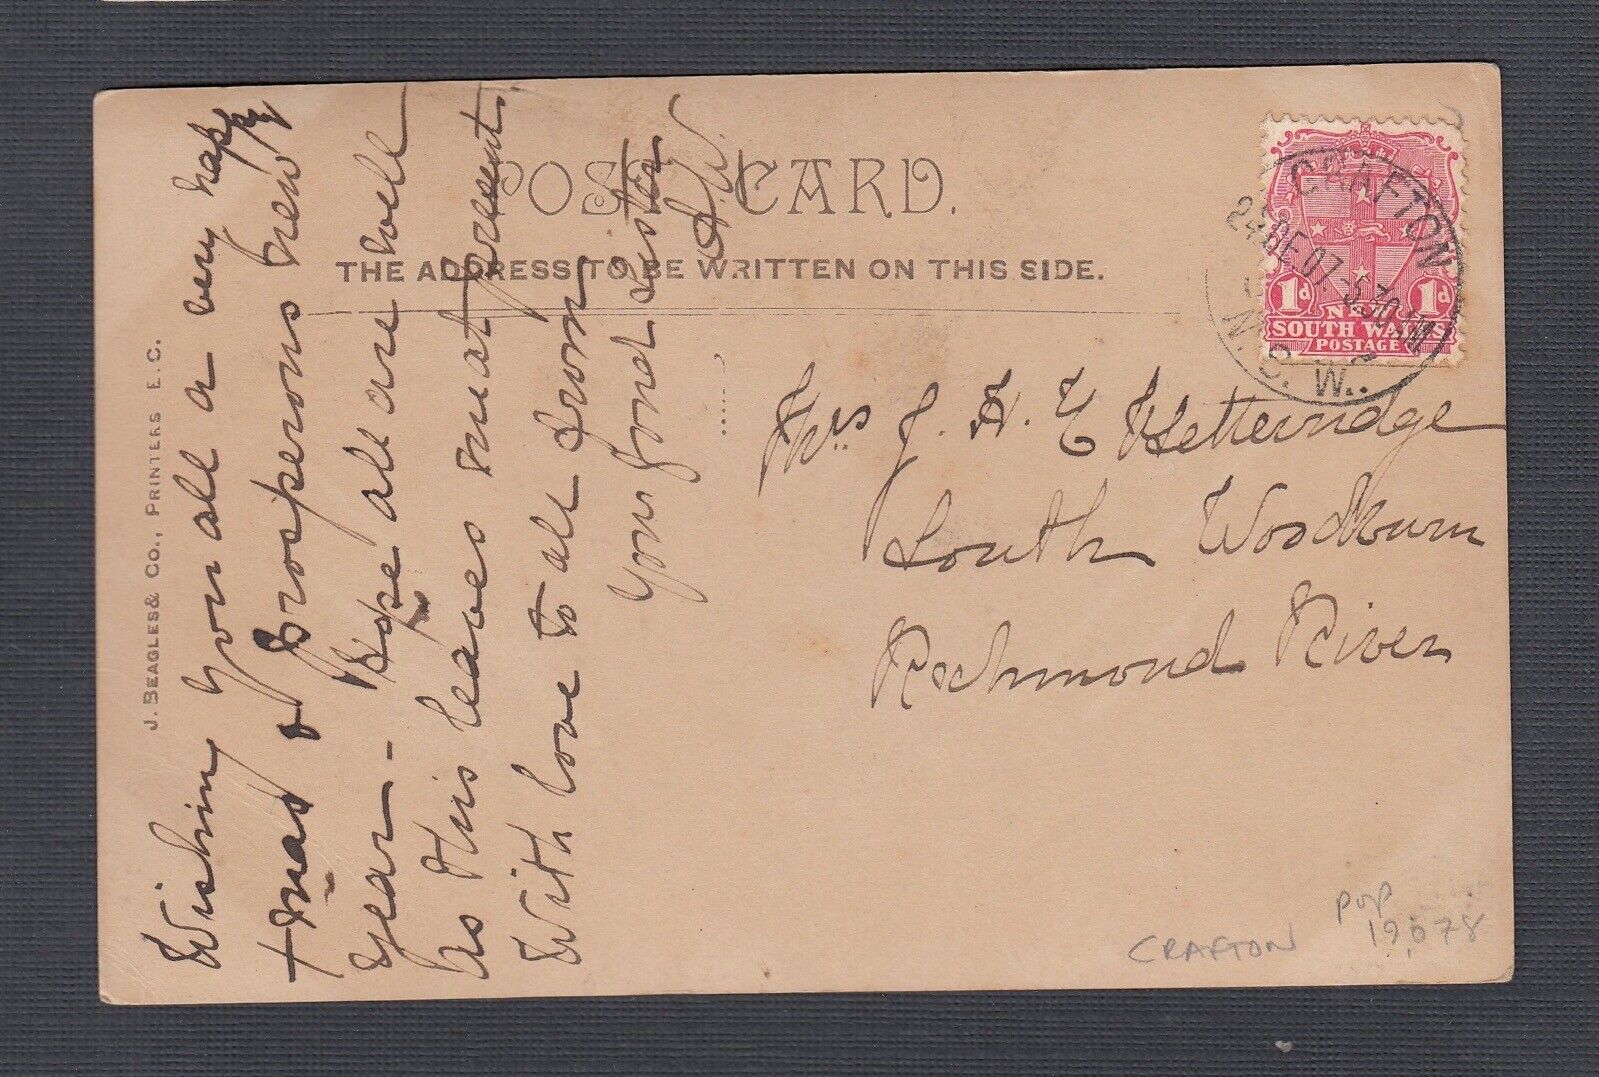 POST CARD.
THE ADDRESS TO BE WRITTEN ON THIS SIDE.
J. BEAGLES & CO., PRINTERS E.C.
Wishing you all a very happy
Xmas & Prosperous New
Year - Hope all are well
as this leaves us at present.
With love to all from
Your fond sister
Mrs J. H. E Hetteridge
South Woodburn
Richmond River
GRAFTON
24 DE 07 5.30
N.S.W.
1d 1d
NEW
SOUTH WALES
POSTAGE
GRAFTON
pop
19,078